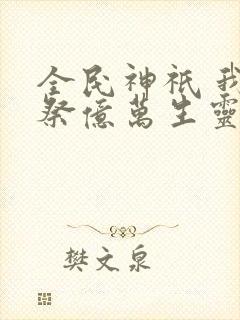 全民神祇 我
祭億萬生靈
樊文泉